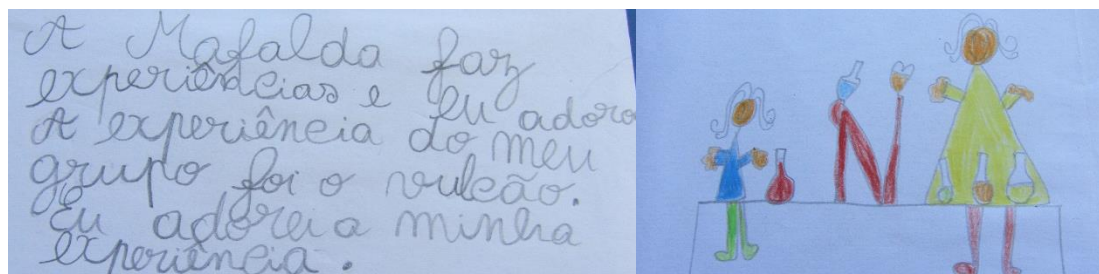 A Mafalda faz
experiências e eu adoro
A experiência do meu
grupo foi o vulcão.
Eu adorei a minha
experiência.